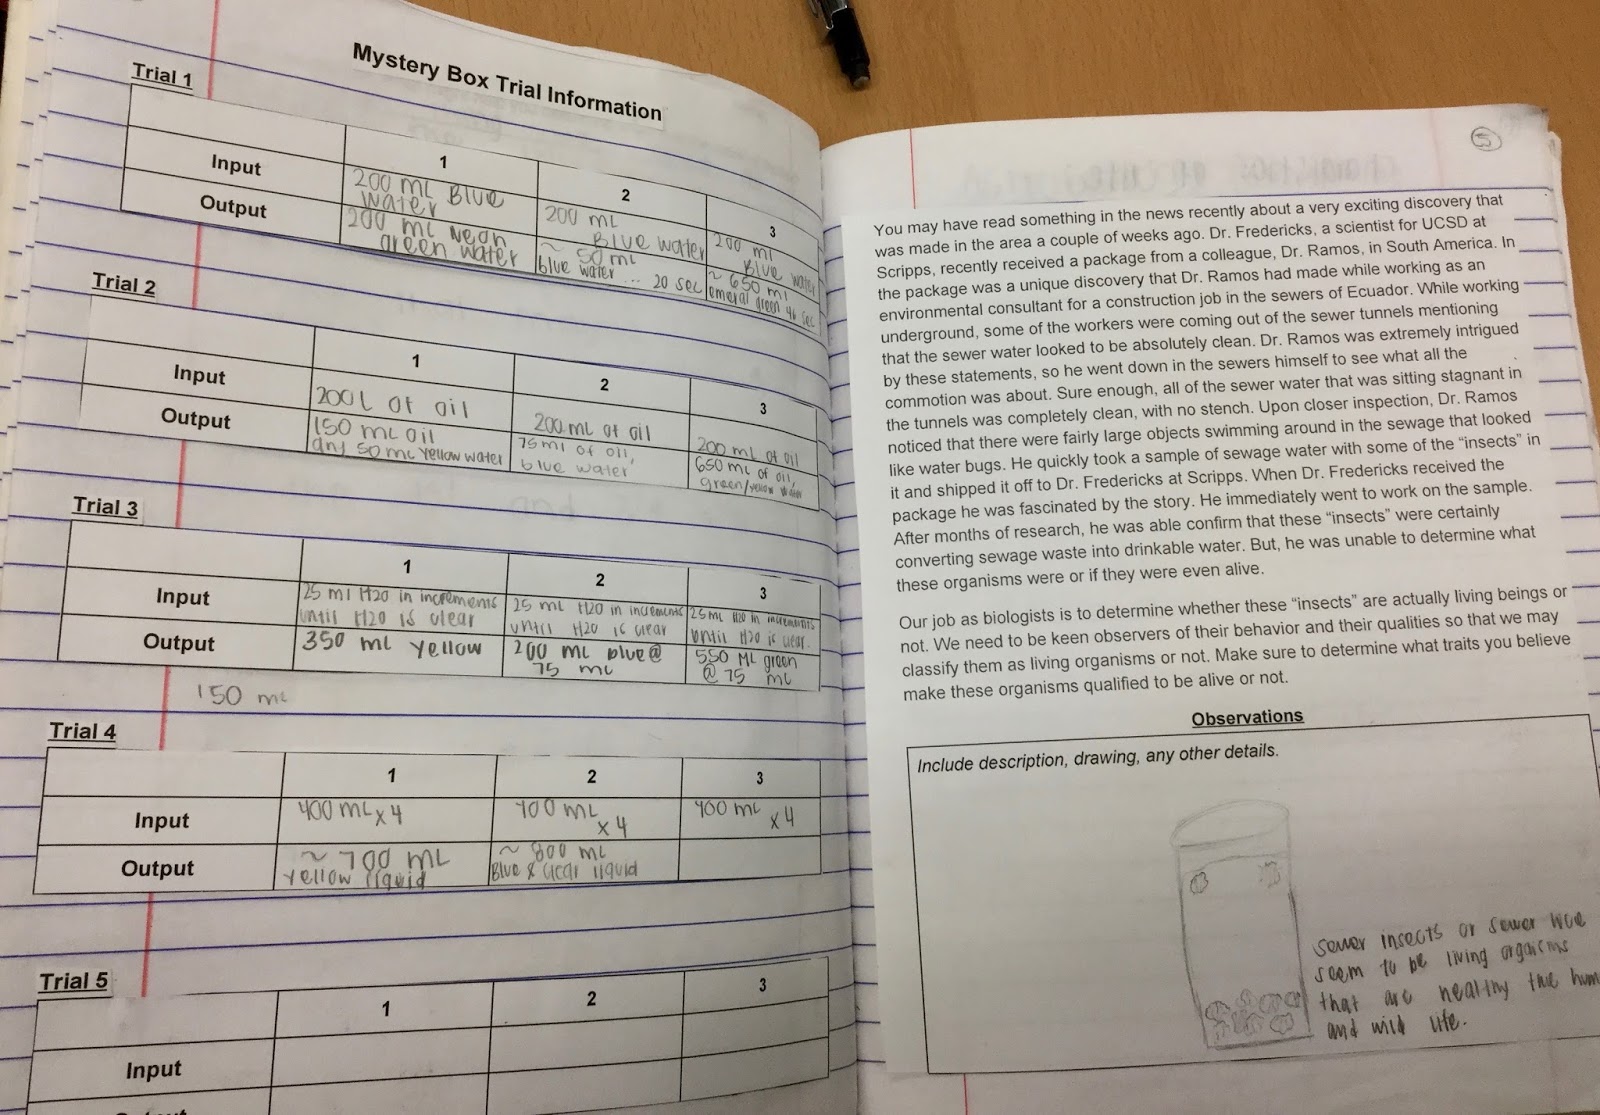 Mystery Box Trial Information
Trial 1
1 2 3
Input
200 mL Blue
water
200 mL
Blue water
200 ml
Blue water
Output
200 mL Neon
green water
~ 50 mL
blue water ... 20 sec
~ 650 ml
emeral green 46 sec
Trial 2
1 2 3
Input
200 L of oil
200 mL of oil
200 mL of oil
Output
150 mL oil
any 50 mL yellow water
75 ml of oil,
blue water
650 mL of oil,
green/yellow water
Trial 3
1 2 3
Input
25 ml H20 in increments
until H20 is clear
25 mL H20 in increments
until H20 is clear
25 mL H20 in increments
until H20 is clear.
Output
350 mL Yellow
200 mL blue @
75 mL
550 ML green
@ 75 mL
150 mL
Trial 4
1 2 3
Input
400 mL x 4
400 mL
x 4
400 mL
x 4
Output
~ 700 mL
yellow liquid
~ 800 mL
Blue & clear liquid
Trial 5
1 2 3
Input
5
You may have read something in the news recently about a very exciting discovery that
was made in the area a couple of weeks ago. Dr. Fredericks, a scientist for UCSD at
Scripps, recently received a package from a colleague, Dr. Ramos, in South America. In
the package was a unique discovery that Dr. Ramos had made while working as an
environmental consultant for a construction job in the sewers of Ecuador. While working
underground, some of the workers were coming out of the sewer tunnels mentioning
that the sewer water looked to be absolutely clean. Dr. Ramos was extremely intrigued
by these statements, so he went down in the sewers himself to see what all the
commotion was about. Sure enough, all of the sewer water that was sitting stagnant in
the tunnels was completely clean, with no stench. Upon closer inspection, Dr. Ramos
noticed that there were fairly large objects swimming around in the sewage that looked
like water bugs. He quickly took a sample of sewage water with some of the “insects” in
it and shipped it off to Dr. Fredericks at Scripps. When Dr. Fredericks received the
package he was fascinated by the story. He immediately went to work on the sample.
After months of research, he was able confirm that these “insects” were certainly
converting sewage waste into drinkable water. But, he was unable to determine what
these organisms were or if they were even alive.
Our job as biologists is to determine whether these “insects” are actually living beings or
not. We need to be keen observers of their behavior and their qualities so that we may
classify them as living organisms or not. Make sure to determine what traits you believe
make these organisms qualified to be alive or not.
Observations
Include description, drawing, any other details.
sewer insects or sewer
seem to be living orgaisms
that are healthy the hum
and wild life.